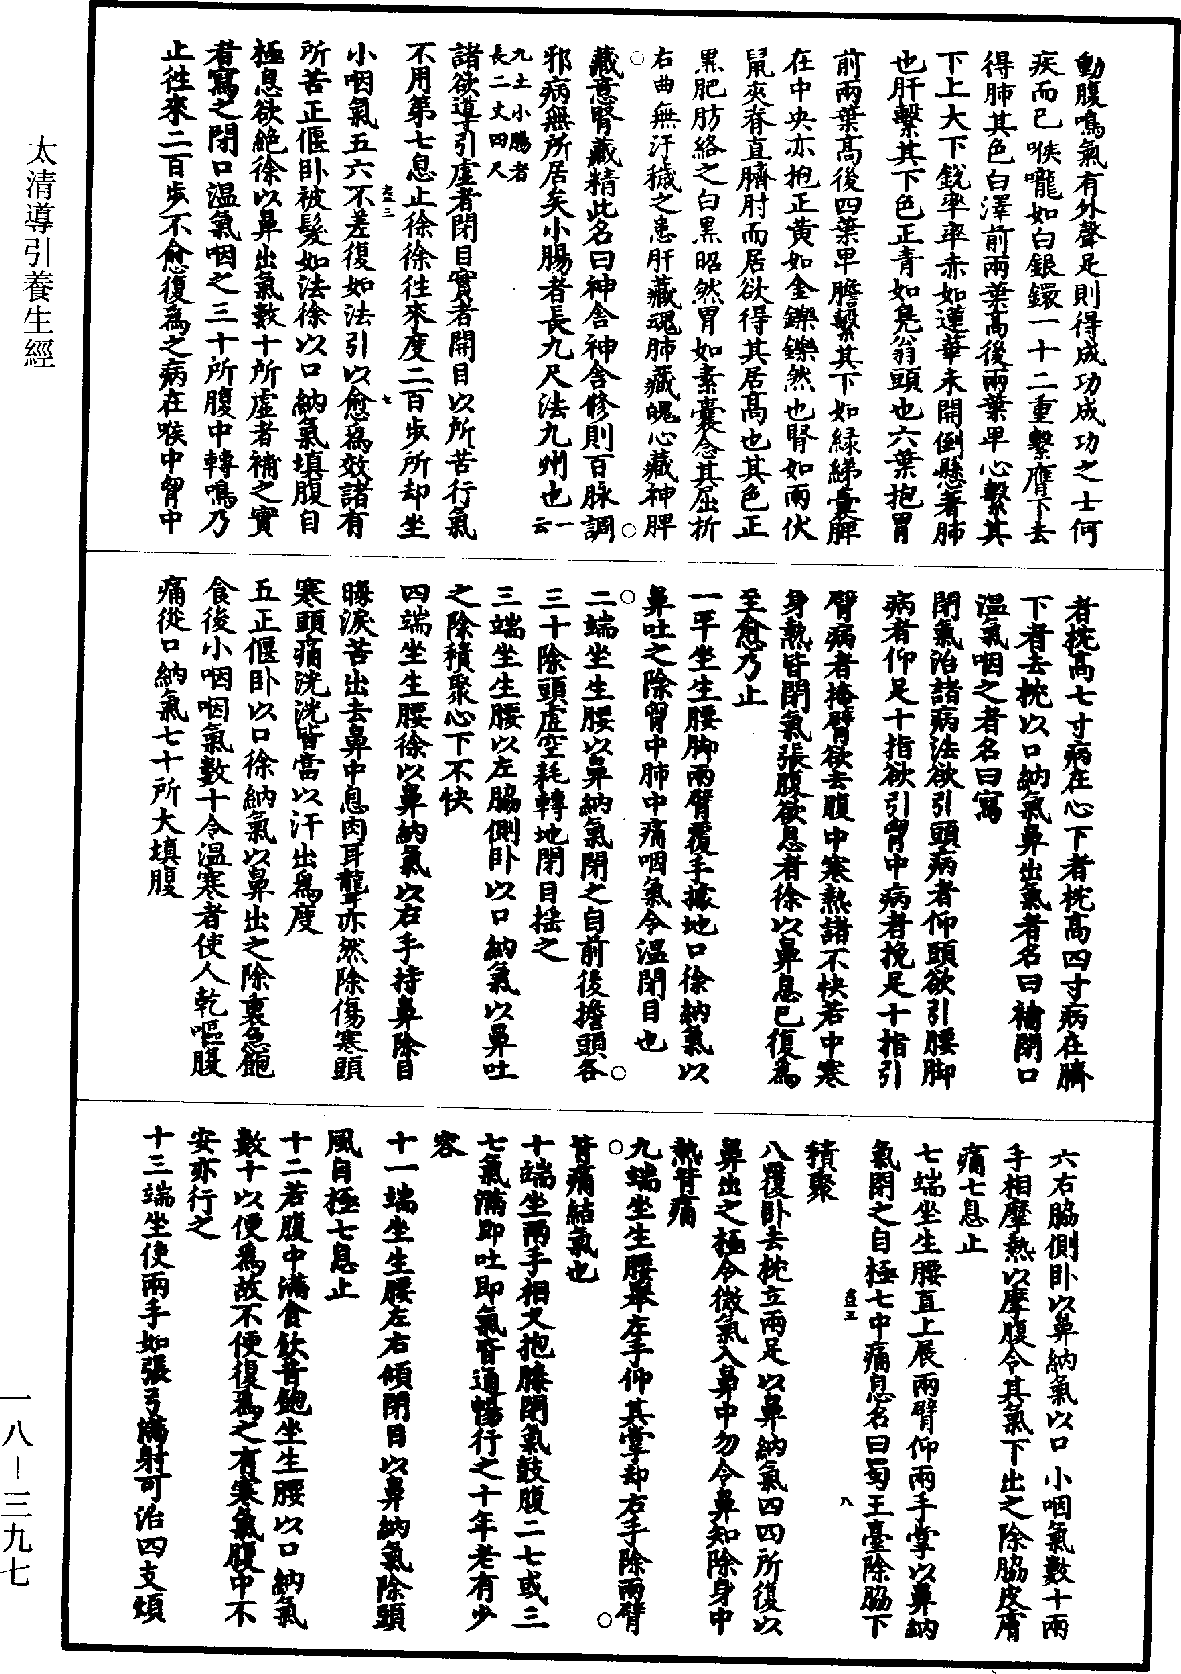 動腹鳴氣有外聲足則得成功成功之士何
疾而已喉嚨如白銀鐶一十二重繫膺下去
得肺其色白澤前兩葉高後兩葉卑心繫其
下上大下銳率率赤如蓮華未開倒懸著肺
也肝繫其下色正青如鳧翁頭也六葉抱胃
前兩葉高後四葉卑膽繫其下如綠綈囊脾
在中央亦抱正黃如金鑠鑠然也腎如兩伏
鼠夾脊直臍肘而居欲得其居高也其色正
黑肥肪絡之白黑昭然胃如素囊念其屈折
右曲無汙穢之患肝藏魂肺藏魄心藏神脾
藏意腎藏精此名曰神舍神舍修則百脉調
邪病無所居矣小腸者長九尺法九州也一云
九土小腸者
長二丈四尺
諸欲導引虛者閉目實者開目以所苦行氣
不用第七息止徐徐往來度二百步所却坐
小咽氣五六不差復如法引以愈爲效諸有
所苦正偃卧被髮如法徐以口納氣填腹自
極息欲絕徐以鼻出氣數十所虛者補之實
者寫之閉口溫氣咽之三十所腹中轉鳴乃
止往來二百步不愈復爲之病在喉中胷中
者枕高七寸病在心下者枕高四寸病在臍
下者去枕以口納氣鼻出氣者名曰補閉口
溫氣咽之者名曰寫
閉氣治諸病法欲引頭病者仰頭欲引腰脚
病者仰足十指欲引胷中病者挽足十指引
臂病者掩臂欲去腹中寒熱諸不快若中寒
身熱皆閉氣張腹欲息者徐以鼻息已復爲
至愈乃止
一平坐生腰脚兩臂覆手據地口徐納氣以
鼻吐之除胷中肺中痛咽氣令溫閉目也
二端坐生腰以鼻納氣閉之自前後搖頭各
三十除頭虛空耗轉地閉目搖之
三端坐生腰以左脇側卧以口納氣以鼻吐
之除積聚心下不快
四端坐生腰徐以鼻納氣以右手持鼻除目
晦淚苦出去鼻中息肉耳聾亦然除傷寒頭
寒頭痛洗洗皆當以汗出爲度
五正偃卧以口徐納氣以鼻出之除裏急飽
食後小咽咽氣數十令溫寒者使人乾嘔腹
痛從口納氣七十所大填腹
六右脇側卧以鼻納氣以口小咽氣數十兩
手相摩熱以摩腹令其氣下出之除脇皮膚
痛七息止
七端坐生腰直上展兩臂仰兩手掌以鼻納
氣閉之自極七中痛息名曰蜀王臺除脇下
積聚
八覆卧去枕立兩足以鼻納氣四四所復以
鼻出之極令微氣入鼻中勿令鼻知除身中
熱背痛
九端坐生腰舉左手仰其掌却右手除兩臂
背痛結氣也
十端坐兩手相叉抱膝閉氣鼓腹二七或三
七氣滿即吐即氣皆通暢行之十年老有少
容
十一端坐生腰左右傾閉目以鼻納氣除頭
風自極七息止
十二若腹中滿食飲苦飽坐生腰以口納氣
數十以便爲故不便復爲之有寒氣腹中不
安亦行之
十三端坐使兩手如張弓滿射可治四支煩
太清導引養生經
一八—三九七